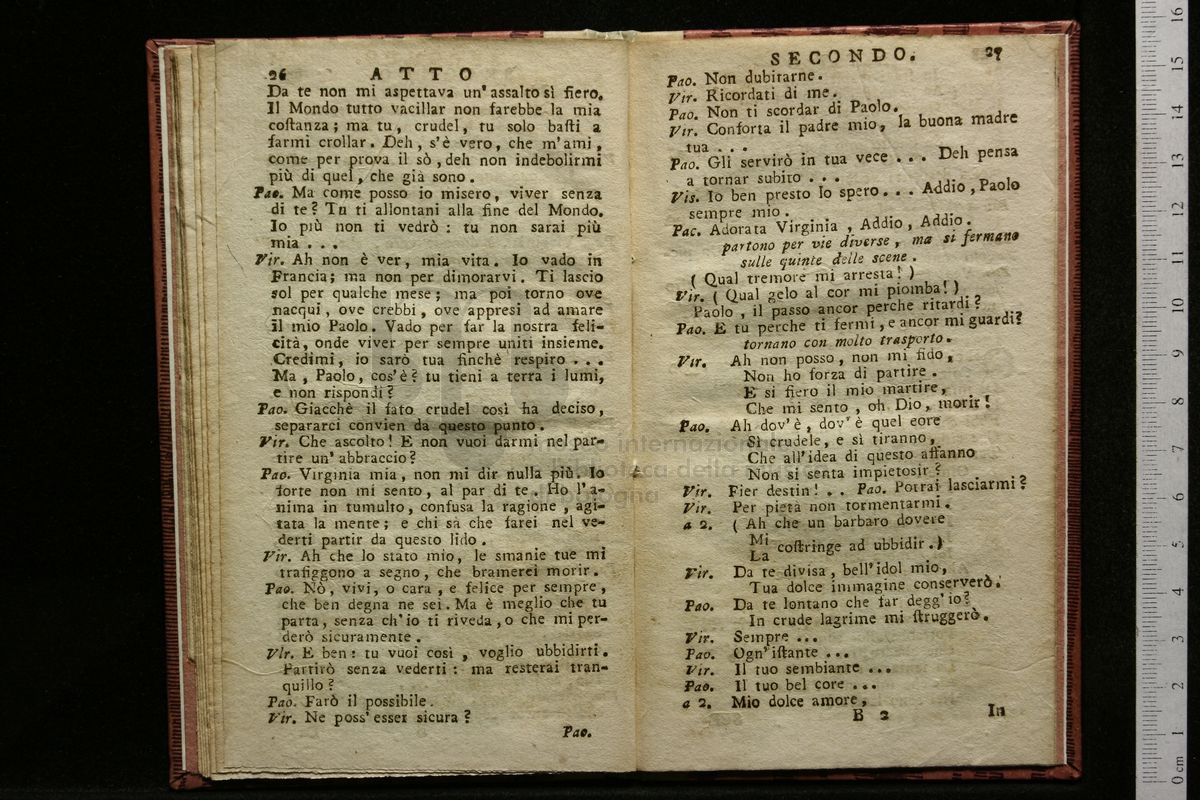 26 ATTO
Da te non mi aspettava un' assalto sì fiero.
Il Mondo tutto vacillar non farebbe la mia
costanza; ma tu, crudel, tu solo basti a
farmi crollar. Deh, s'è vero, che m'ami,
come per prova il sò, deh non indebolirmi
più di quel, che già sono.
Pao. Ma come posso io misero, viver senza
di te? Tu ti allontani alla fine del Mondo.
Io più non ti vedrò: tu non sarai più
mia...
Vir. Ah non è ver, mia vita. Io vado in
Francia; ma non per dimorarvi. Ti lascio
sol per qualche mese; ma poi torno ove
nacqui, ove crebbi, ove appresi ad amare
il mio Paolo. Vado per far la nostra feli-
cità, onde viver per sempre uniti insieme.
Credimi, io sarò tua finchè respiro...
Ma, Paolo, cos'è? tu tieni a terra i lumi,
e non rispondi?
Pao. Giacchè il fato crudel così ha deciso,
separarci convien da questo punto.
Vir. Che ascolto! E non vuoi darmi nel par-
tire un' abbraccio?
Pao. Virginia mia, non mi dir nulla più. Io
forte non mi sento, al par di te. Ho l'a-
nima in tumulto, confusa la ragione, agi-
tata la mente; e chi sà che farei nel ve-
derti partir da questo lido.
Vir. Ah che lo stato mio, le smanie tue mi
trafiggono a segno, che bramerei morir.
Pao. Nò, vivi, o cara, e felice per sempre,
che ben degna ne sei. Ma è meglio che tu
parta, senza ch'io ti riveda, o che mi per-
derò sicuramente.
VIr. E ben: tu vuoi così, voglio ubbidirti.
Partirò senza vederti: ma resterai tran-
quillo?
Pao. Farò il possibile.
Vir. Ne poss' esser sicura?
Pao.
SECONDO. 27
Pao. Non dubitarne.
Vir. Ricordati di me.
Pao. Non ti scordar di Paolo.
Vir. Conforta il padre mio, la buona madre
tua...
Pao. Gli servirò in tua vece... Deh pensa
a tornar subito...
Vis. Io ben presto lo spero... Addio, Paolo
sempre mio.
Pac. Adorata Virginia, Addio, Addio.
partono per vie diverse, ma si fermano
sulle quinte delle scene.
( Qual tremore mi arresta! )
Vir. ( Qual gelo al cor mi piomba! )
Paolo, il passo ancor perche ritardi?
Pao. E tu perche ti fermi, e ancor mi guardi?
tornano con molto trasporto.
Vir. Ah non posso, non mi fido,
Non ho forza di partire.
E sì fiero il mio martire,
Che mi sento, oh Dio, morir!
Pao. Ah dov'è, dov'è quel core
Sì crudele, e sì tiranno,
Che all'idea di questo affanno
Non si senta impietosir?
Vir. Fier destin!.. Pao. Potrai lasciarmi?
Vir. Per pietà non tormentarmi.
a 2. ( Ah che un barbaro dovere
Mi
La costringe ad ubbidir. )
Vir. Da te divisa, bell'idol mio,
Tua dolce immagine conserverò.
Pao. Da te lontano che far degg'io?
In crude lagrime mi struggerò.
Vir. Sempre...
Pao. Ogn'istante...
Vir. Il tuo sembiante...
Pao. Il tuo bel core...
a 2. Mio dolce amore,
B 2 In